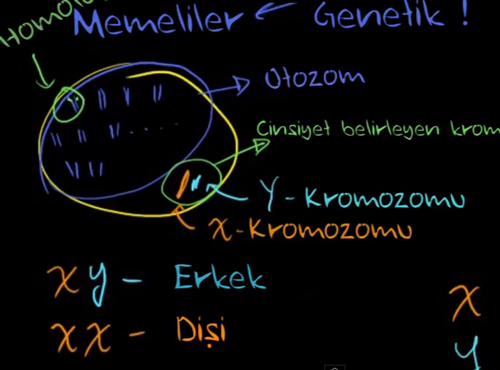 Memeliler ← Genetik!
Otozom
Cinsiyet belirleyen krom
Y-Kromozomu
X-Kromozomu
XY - Erkek
XX - Dişi
X
Y